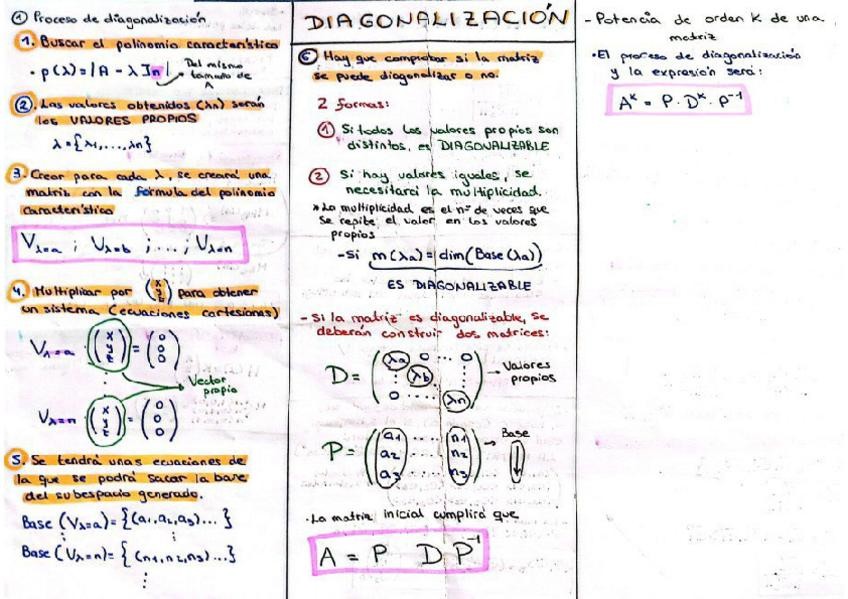 ① Proceso de diagonalización
1. Buscar el polinomio característico
· p(λ) = |A - λIn| Del mismo tamaño de A
②. Los valores obtenidos (λn) serán
los VALORES PROPIOS
λ = {λ1, ..., λn}
3. Crear para cada λ, se creará una
matriz con la fórmula del polinomio
característico
Vλ=a ; Vλ=b ; ... ; Vλ=n
4. Multiplicar por (x y z) para obtener
un sistema (ecuaciones cartesianas)
Vλ=a · (x y z) = (0 0 0)
Vector propio
Vλ=n · (x y z) = (0 0 0)
5. Se tendrá unas ecuaciones de
la que se podrá sacar la base
del subespacio generado.
Base (Vλ=a) = {(a1, a2, a3) ... }
Base (Vλ=n) = {(n1, n2, n3) ...}
DIAGONALIZACIÓN
⑥ Hay que comprobar si la matriz
se puede diagonalizar o no.
2 formas:
① Si todos los valores propios son
distintos, es DIAGONALIZABLE
② Si hay valores iguales, se
necesitará la multiplicidad.
* La multiplicidad es el nº de veces que
se repite el valor en los valores
propios
- Si m(λa) = dim(Base(λa))
ES DIAGONALIZABLE
- Si la matriz es diagonalizable, se
deberán construir dos matrices:
D = (λa 0 ... 0
λb
0 ... λn) → Valores propios
P = (a1 ... n1
a2 n2
a3 ... n3) → Base
· La matriz inicial cumplirá que
A = P D P⁻¹
- Potencia de orden K de una
matriz
· El proceso de diagonalización
y la expresión será:
Aᵏ = P · Dᵏ · P⁻¹